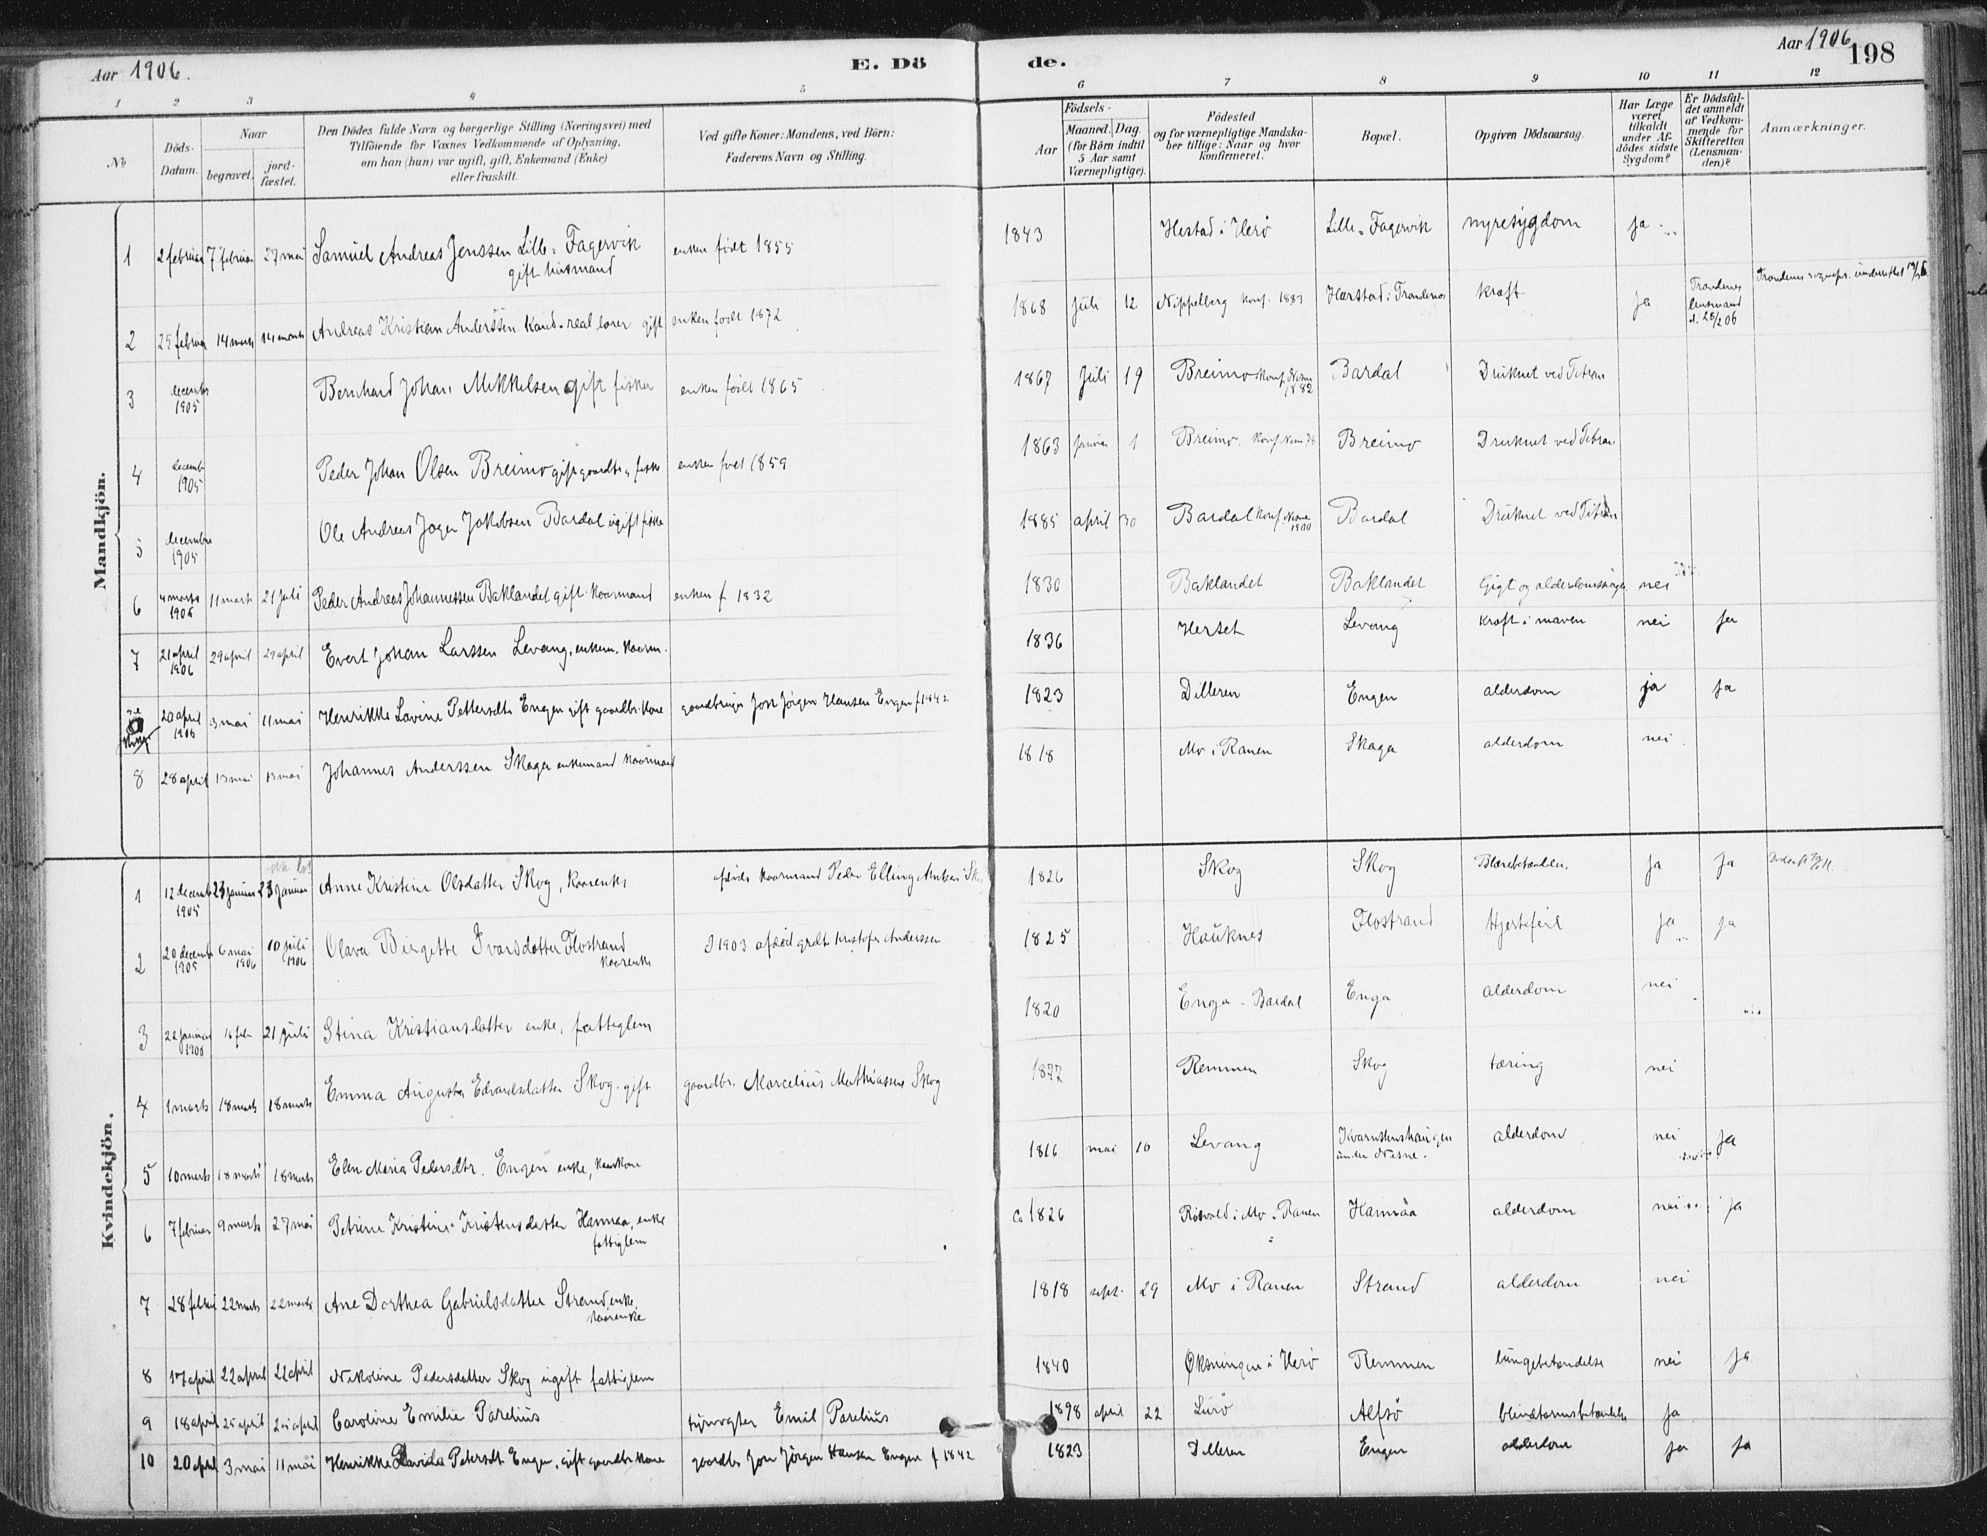 Aar 1906.
E. Dö
de.
Aar 1906
198
1 2 3 4 5 6 7 8 9 10 11 12
No
Döds-Datum.
Naar
begravet.
jord-fæstet.
Den Dödes fulde Navn og borgerlige Stilling (Næringsvei) med
Tilföiende for Voxnes Vedkommende af Oplysning,
om han (hun) var ugift, gift, Enkemand (Enke)
eller fraskilt.
Ved gifte Koner: Mandens, ved Börn:
Faderens Navn og Stilling.
Födsels-
Aar
Maaned. Dag.
(for Börn indtil
5 Aar samt
Værnepligtige).
Födested
og for værnepligtige Mandska-
ber tillige: Naar og hvor
konfirmeret.
Bopæl.
Opgiven Dödsaarsag.
Har Læge
været
tilkaldt
under Af-
dödes sidste
Sygdom?
Er Dödsfal-
det anmeldt
af Vedkom-
mende for
Skifteretten
(Lensman-
den)?
Anmærkninger.
Mandkjön.
1 2 februar 7 februar 27 mai Samuel Andreas Jenssen Lille-Fagervik enken født 1855 1843 Hestad i Herø Lille-Fagervik nyresygdom ja
gift husmand
2 25 februar 14 marts 14 marts Andreas Kristian Anderssen kand. real lærer gift enken født 1872 1868 Juli 12 Nippelberg konf. 1883 Harstad i Trondenes kræft ja Trondenes lensmand d. 28/2 06 Trondenes sognepr. underrettet
3 december 1905 Bernhard Johan Mikkelsen gift fisker enken født 1865 1867 Juli 19 Breimo konf. Nesne 1882 Bardal Druknet ved Titran
4 decemb 1905 Peder Johan Olsen Breimo gift gaardbr. fisker enken født 1859 1863 januar 1 Breimo. konf. Nesne 78 Breimo Druknet ved Titran
5 december 1905 Ole Andreas Joger Jakobsen Bardal ugift fisker 1885 april 30 Bardal konf. Nesne 1900 Bardal Druknet ved Titran
6 4 marts 1906 11 marts 21 juli Peder Andreas Johannessen Baklandet gift kaarmand enken f 1832 1830 Baklandet Baklandet Gigt og nei
7 21 april 1906 29 april 29 april Evert Johan Larssen Levang, enkem. kaarm. 1836 Herset Levang kræft i maven nei ja
20 april 1906 3 mai 11 mai Henrikke Lovine Pettersdtr Engen gift gaardbr. kone gaardbruger Jon Jørgen Hansen Engen f 1842 1823 Dilleren Engen alderdom ja ja
8 28 april 13 mai 13 mai Johannes Anderssen Skaga enkemand kaarmand 1818 Mo i Ranen Skaga alderdom nei
Kvindekjön.
1 12 decemb 1905 23 januar 23 januar Anne Kristine Olsdatter Skog, kaarenke afdøde kaarmand Peder Elling Andreas 1826 Skog Skog Blærebetændelse. ja ja
2 20 decemb 1905 6 mai 1906 10 juli 1906 Olava Birgitte Ivarsdatter Flostrand I 1903 afdød grdbr. Kristofer Anderssen 1825 Hauknes Flostrand Hjertefeil ja ja
kaarenke
3 22 januar 1906 16 febr 21 juli Stina Kristiansdatter enke, fattiglem 1820 Enga - Bardal Enga alderdom nei
4 1 marts 18 marts 18 marts Emma Augusta Edvardsdatter Skog. gift gaardbr. Marcelius Mathiassen Skog 1877 Remmen Skog tæring nei
5 10 marts 18 marts 18 marts Elen Maria Pedersdtr. Engen enke, kaarkone 1816 mai 10 Levang Kvarnstenshaugen under Nesne. alderdom nei ja
6 7 februar 9 marts 27 mai Petrine Kristine Kristensdatter Hamnaa, enke ca 1826 Røsvold i Mo i Ranen Hamnaa alderdom nei ja
fattiglem
7 28 februar 22 marts 22 marts Ane Dorthea Gabrielsdatter Strand, enke, 1818 sept. 29 Mo i Ranen Strand alderdom nei
kaarenke
8 17 april 22 april 22 april Nikoline Pedersdatter Skog ugift fattiglem 1840 Øksningen i Herø Remmen lungebetændelse nei ja
9 18 april 25 april 25 april Caroline Emilie Parelius fyrvogter Emil Parelius 1898 april 22 Lurø Alfsø blindtarmsbetændelse ja
10 20 april 3 mai 11 mai Henrikke Lovida Petersdt Engen, gift gaardbr. kone gaardbr Jon Jörgen Hansen Engen f 1842 1823 Dilleren Engen alderdom ja ja